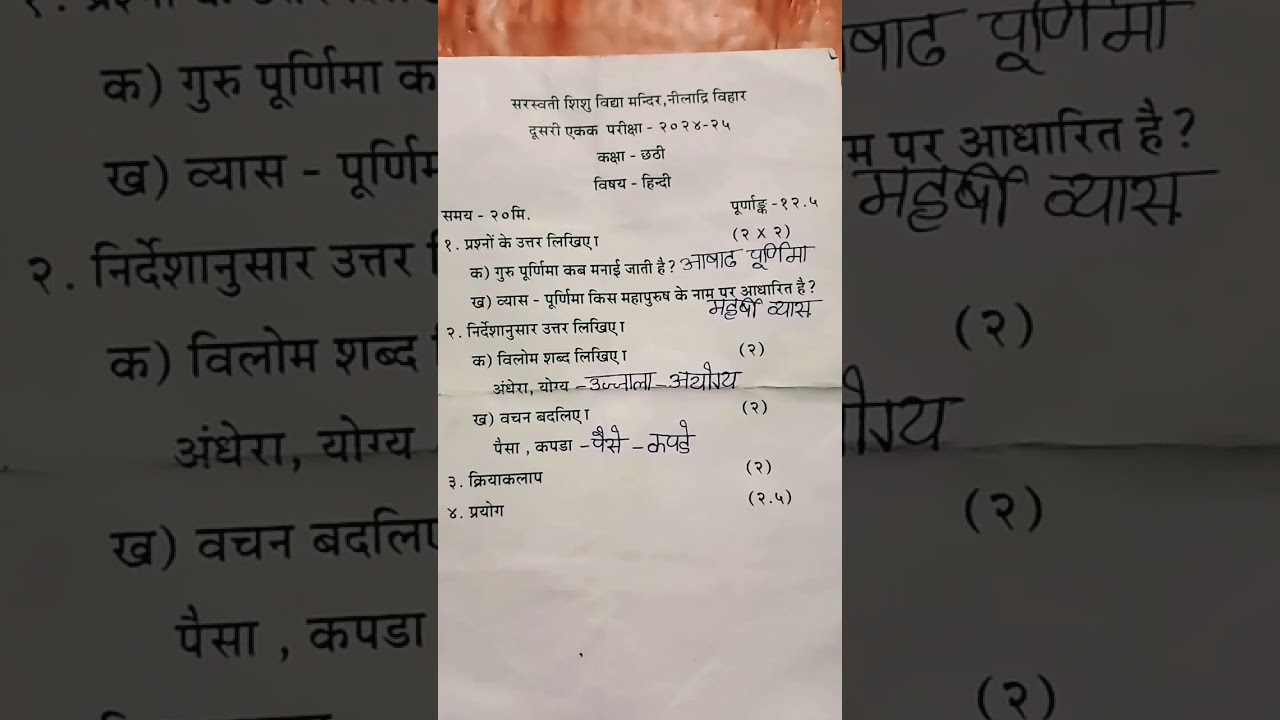 सरस्वती शिशु विद्या मन्दिर,नीलाद्रि विहार
दूसरी एकक परीक्षा - २०२४-२५
कक्षा - छठी
विषय - हिन्दी
समय - २०मि. पूर्णाङ्क -१२.५
१. प्रश्नों के उत्तर लिखिए। (२ X २)
क) गुरु पूर्णिमा कब मनाई जाती है? आषाढ पूर्णिमा
ख) व्यास - पूर्णिमा किस महापुरुष के नाम पर आधारित है?
महर्षी व्यास
२. निर्देशानुसार उत्तर लिखिए।
क) विलोम शब्द लिखिए। (२)
अंधेरा, योग्य - उज्जाला - अयोग्य
ख) वचन बदलिए। (२)
पैसा , कपडा - पैसे - कपडे
३. क्रियाकलाप (२)
४. प्रयोग (२.५)